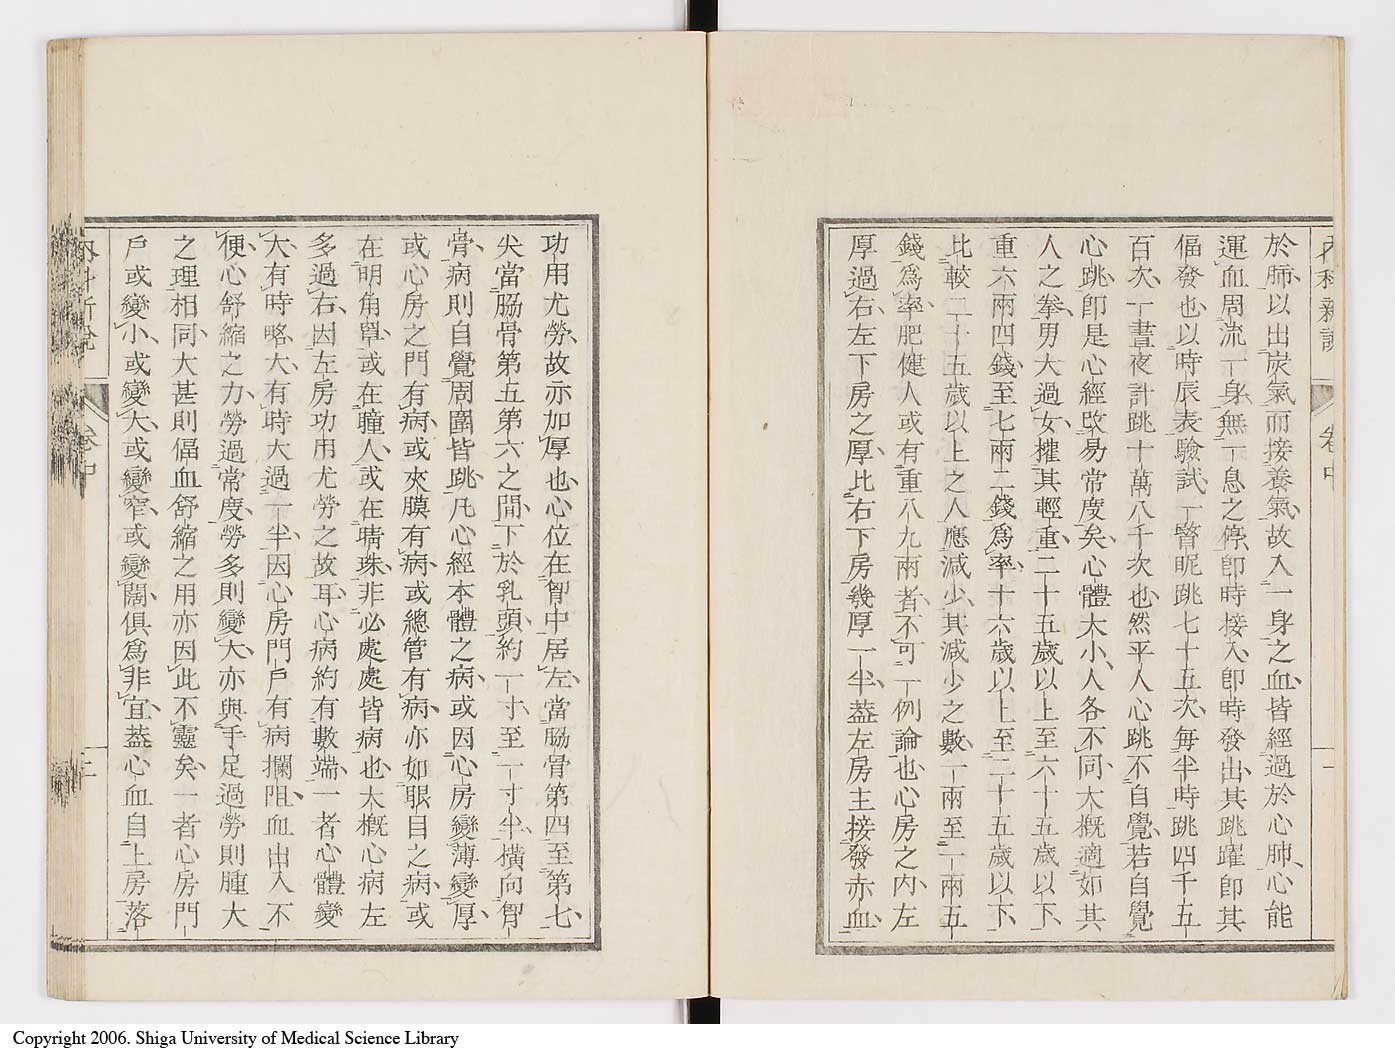 於肺以出炭氣而接養氣故入一身之血皆經過於心肺心能
運血周流一身無一息之停卽時接入卽時發出其跳躍卽其
偪發也以時辰表驗試一瞥眤跳七十五次每半時跳四千五
百次一晝夜計跳十萬八千次也然平人心跳不自覺若自覺
心跳卽是心經改易常度矣心體大小人各不同大槪適如其
人之拳男大過女權其輕重二十五歲以上至六十五歲以下
重六兩四錢至七兩二錢爲率十六歲以上至二十五歲以下
比較二十五歲以上之人應減少其減少之數一兩至一兩五
錢爲率肥健人或有重八九兩者不可一例論也心房之內左
厚過右左下房之厚比右下房幾厚一半葢左房主接發赤血
功用尤勞故亦加厚也心位在胷中居左當肋骨第四至第七
尖當肋骨第五第六之間下於乳頭約一寸至一寸半橫向胷
骨病則自覺周圍皆跳凡心經本體之病或因心房變薄變厚
或心房之門有病或夾膜有病或總管有病亦如眼目之病或
在明角罩或在瞳人或在睛珠非必處處皆病也大槪心病左
多過右因左房功用尤勞之故耳心病約有數端一者心體變
大有時略大有時大過一半因心房門戶有病攔阻血出入不
便心舒縮之力勞過常度勞多則變大亦與手足過勞則腫大
之理相同大甚則偪血舒縮之用亦因此不靈矣一者心房門
戶或變小或變大或變窄或變闊俱爲非宜葢心血自上房落
內科新說
卷中
一
內科新說
卷中
二
Copyright 2006. Shiga University of Medical Science Library